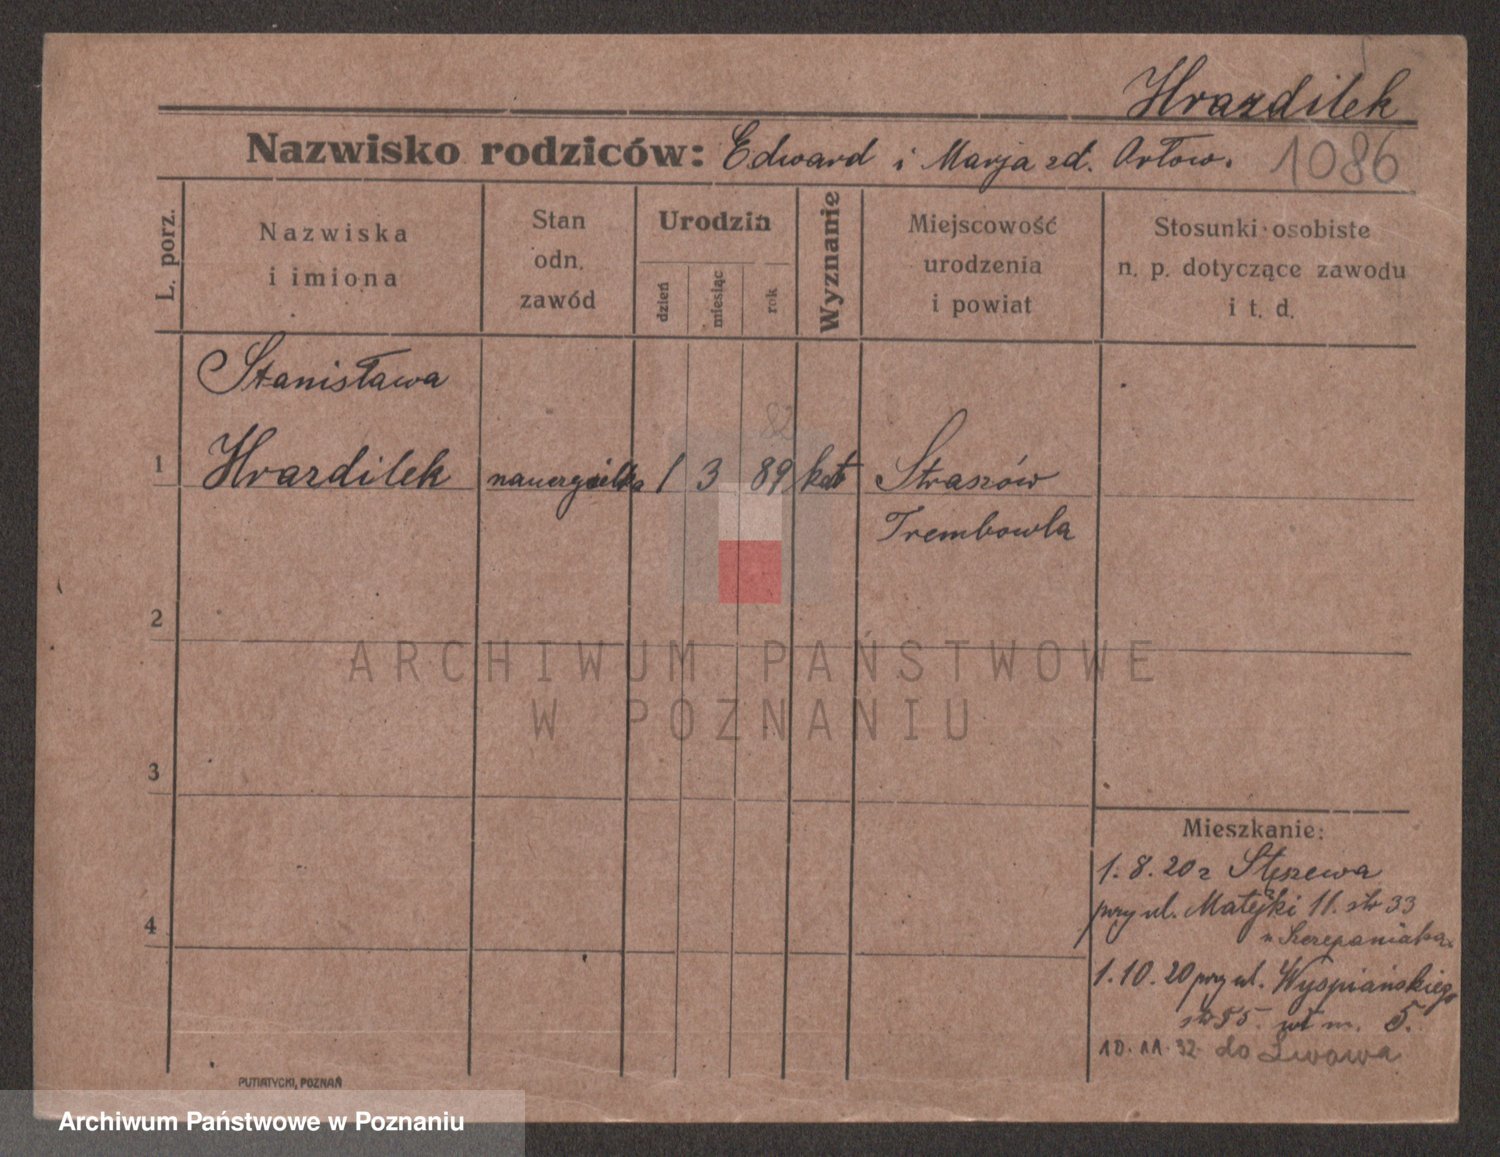 Hrazdilek
Nazwisko rodziców: Edward i Marja zd. Orłow.
1086
L. porz.
Nazwiska
i imiona
Stan
odn.
zawód
Urodzin
dzień
miesiąc
rok
Wyznanie
Miejscowość
urodzenia
i powiat
Stosunki osobiste
n. p. dotyczące zawodu
i t. d.
Stanisława
82
1 Hrazdilek nauczycielka 1 3 89 kat Straszów
Trembowla
2
ARCHIWUM PAŃSTWOWE
W POZNANIU
3
Mieszkanie:
1. 8. 20 z Stęszewa
przy ul. Matejki 11. str 33
u Szczepaniaka.
4
1. 10. 20 przy ul. Wyspiańskiego
5.
10. 11. 32 do Lwowa
PUTIATYCKI, POZNAŃ
Archiwum Państwowe w Poznaniu